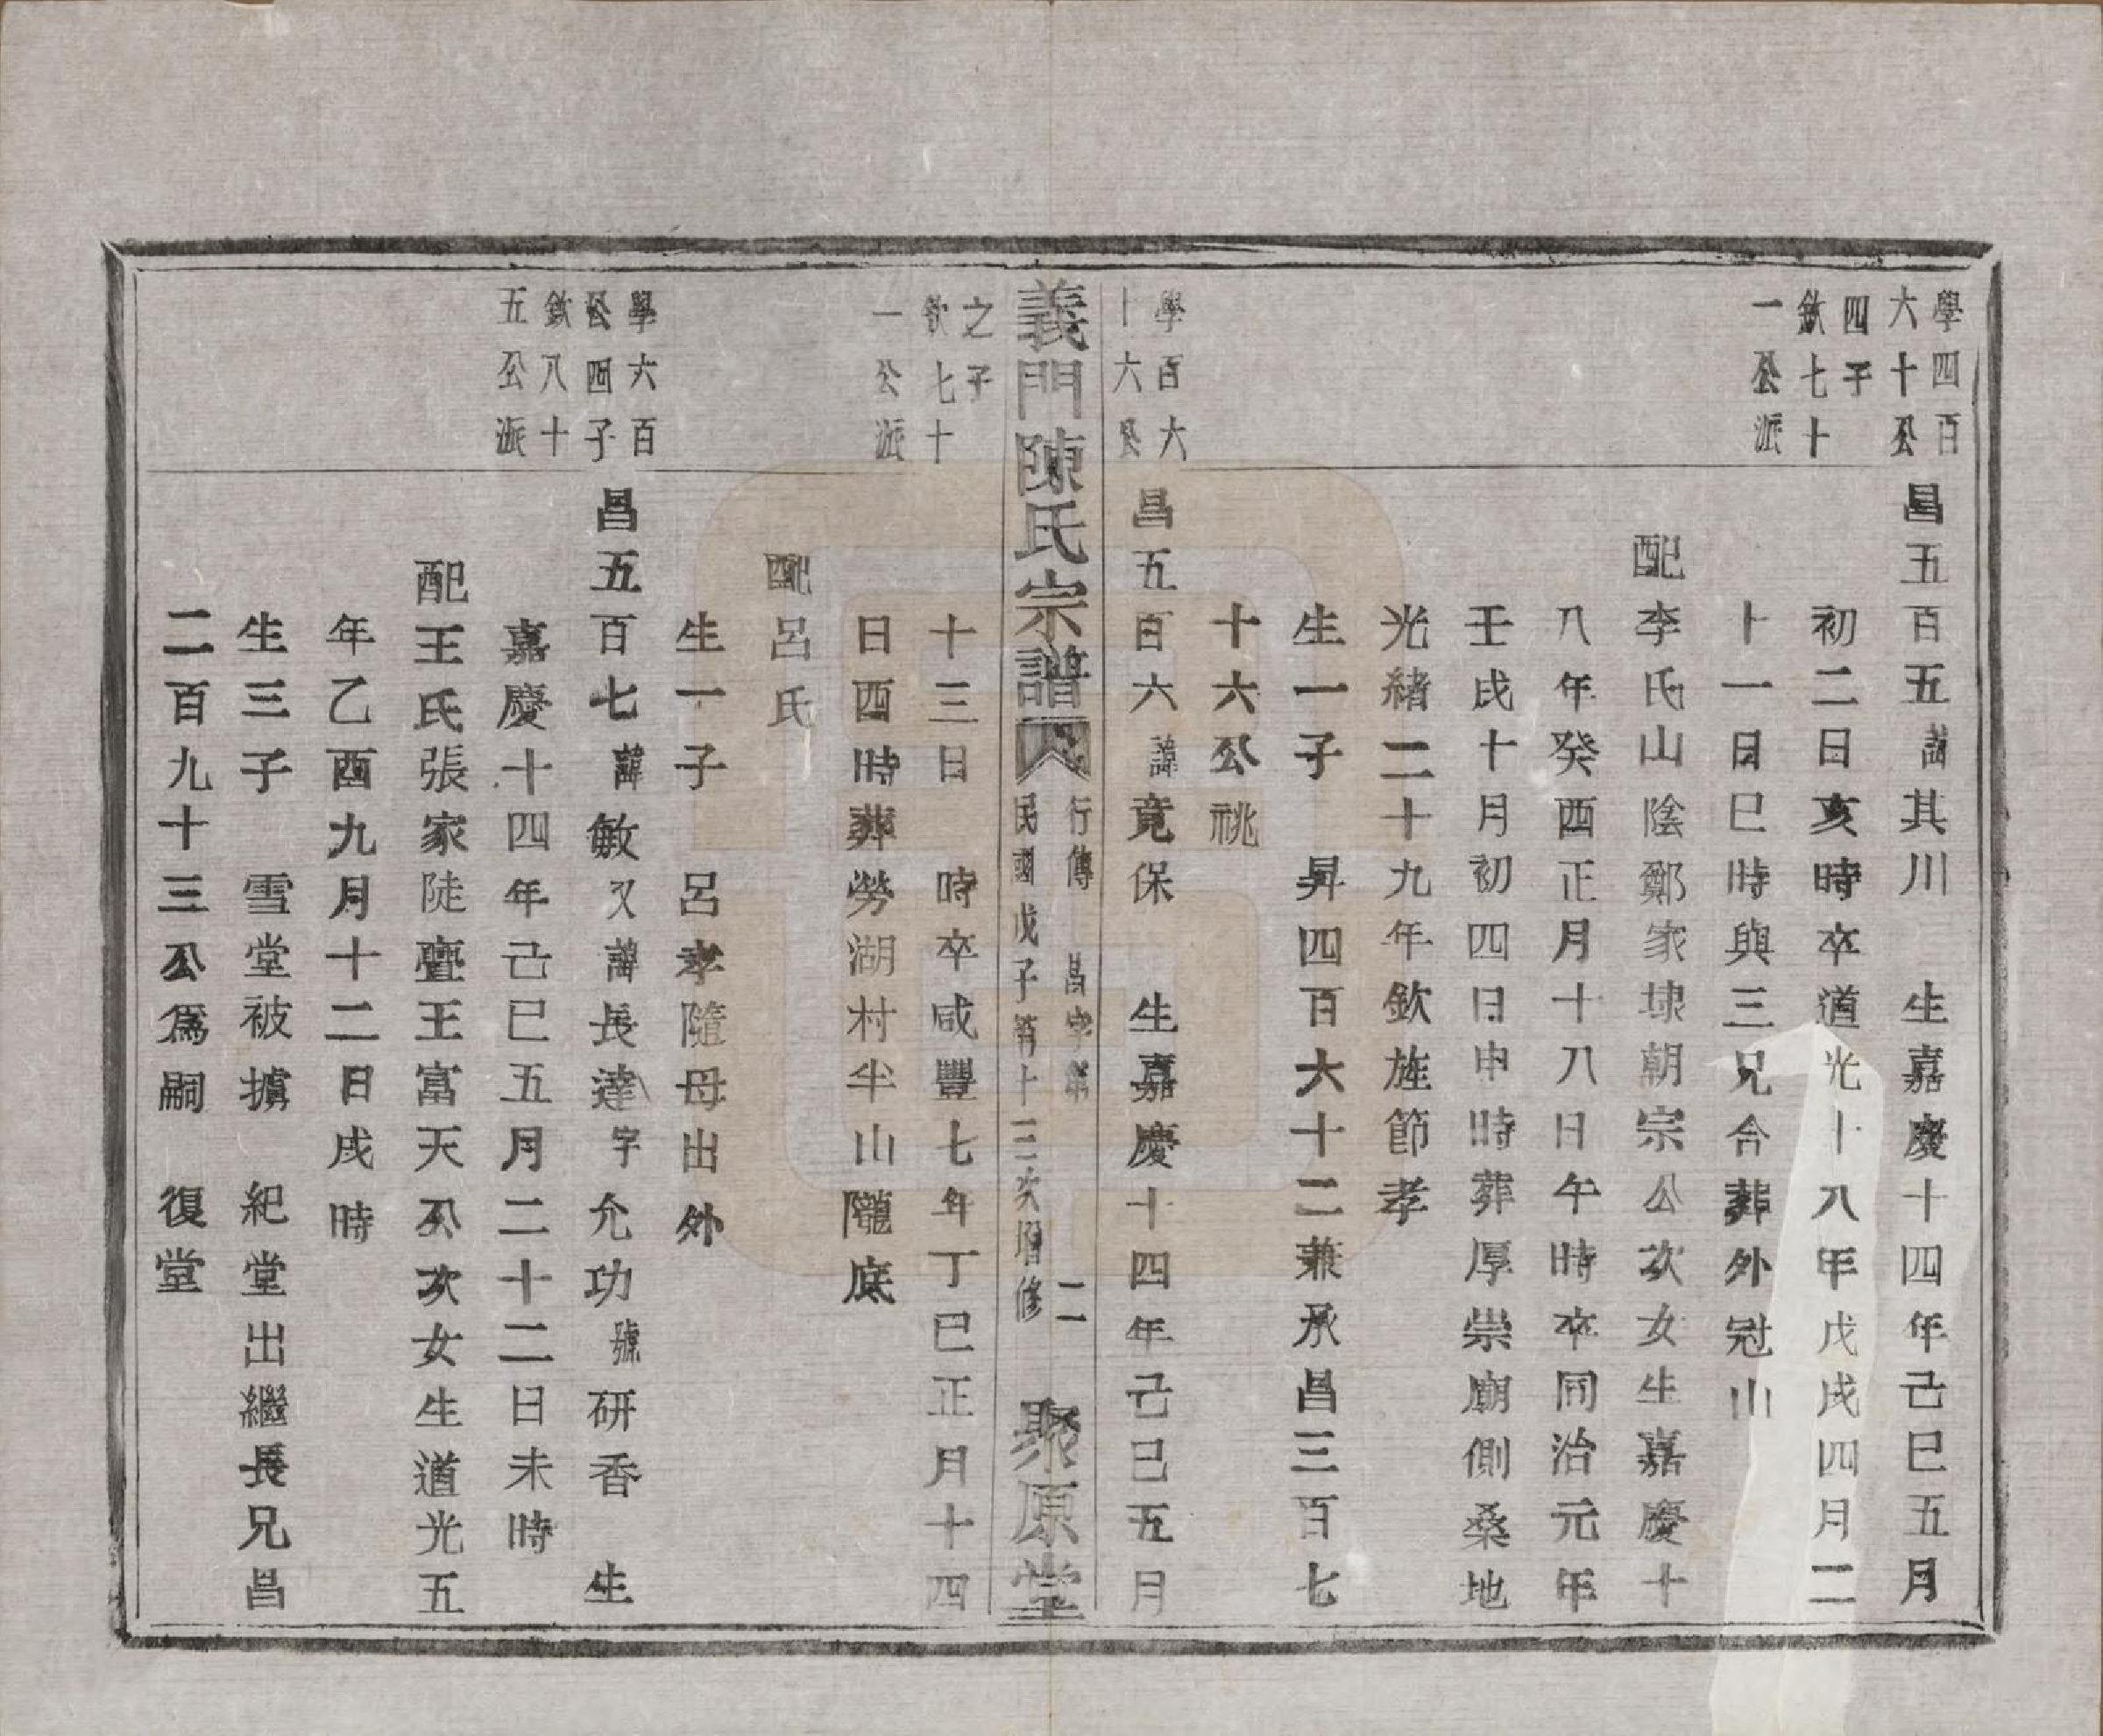 學四百
六十公
四子
欽七十
一公派
昌五百五諱其川　生嘉慶十四年己巳五月
初二日亥時卒道光十八年戊戌四月二
十一日巳時與三兄合葬外冠山
配李氏山陰鄭家埭朝宗公次女生嘉慶十
八年癸酉正月十八日午時卒同治元年
壬戌十月初四日申時葬厚崇廟側桑地
光緒二十九年欽旌節孝
生一子　昇四百六十二兼承昌三百七
十六公祧
學百六
十六公
昌五百六諱竟保　生嘉慶十四年己巳五月
義門陳氏宗譜
行傳　昌字第　二
民國戊子第十三次增修
聚原堂
之子
欽七十
一公派
十三日　時卒咸豐七年丁巳正月十四
日酉時葬勞湖村半山隴底
配呂氏
生一子　呂孝隨母出外
學六百
松四子
欽八十
五公派
昌五百七諱敏又諱長達字允功號研香　生
嘉慶十四年己巳五月二十二日未時
配王氏張家陡亹王富天公次女生道光五
年乙酉九月十二日戌時
生三子　雪堂被擄　紀堂出繼長兄昌
二百九十三公爲嗣　復堂